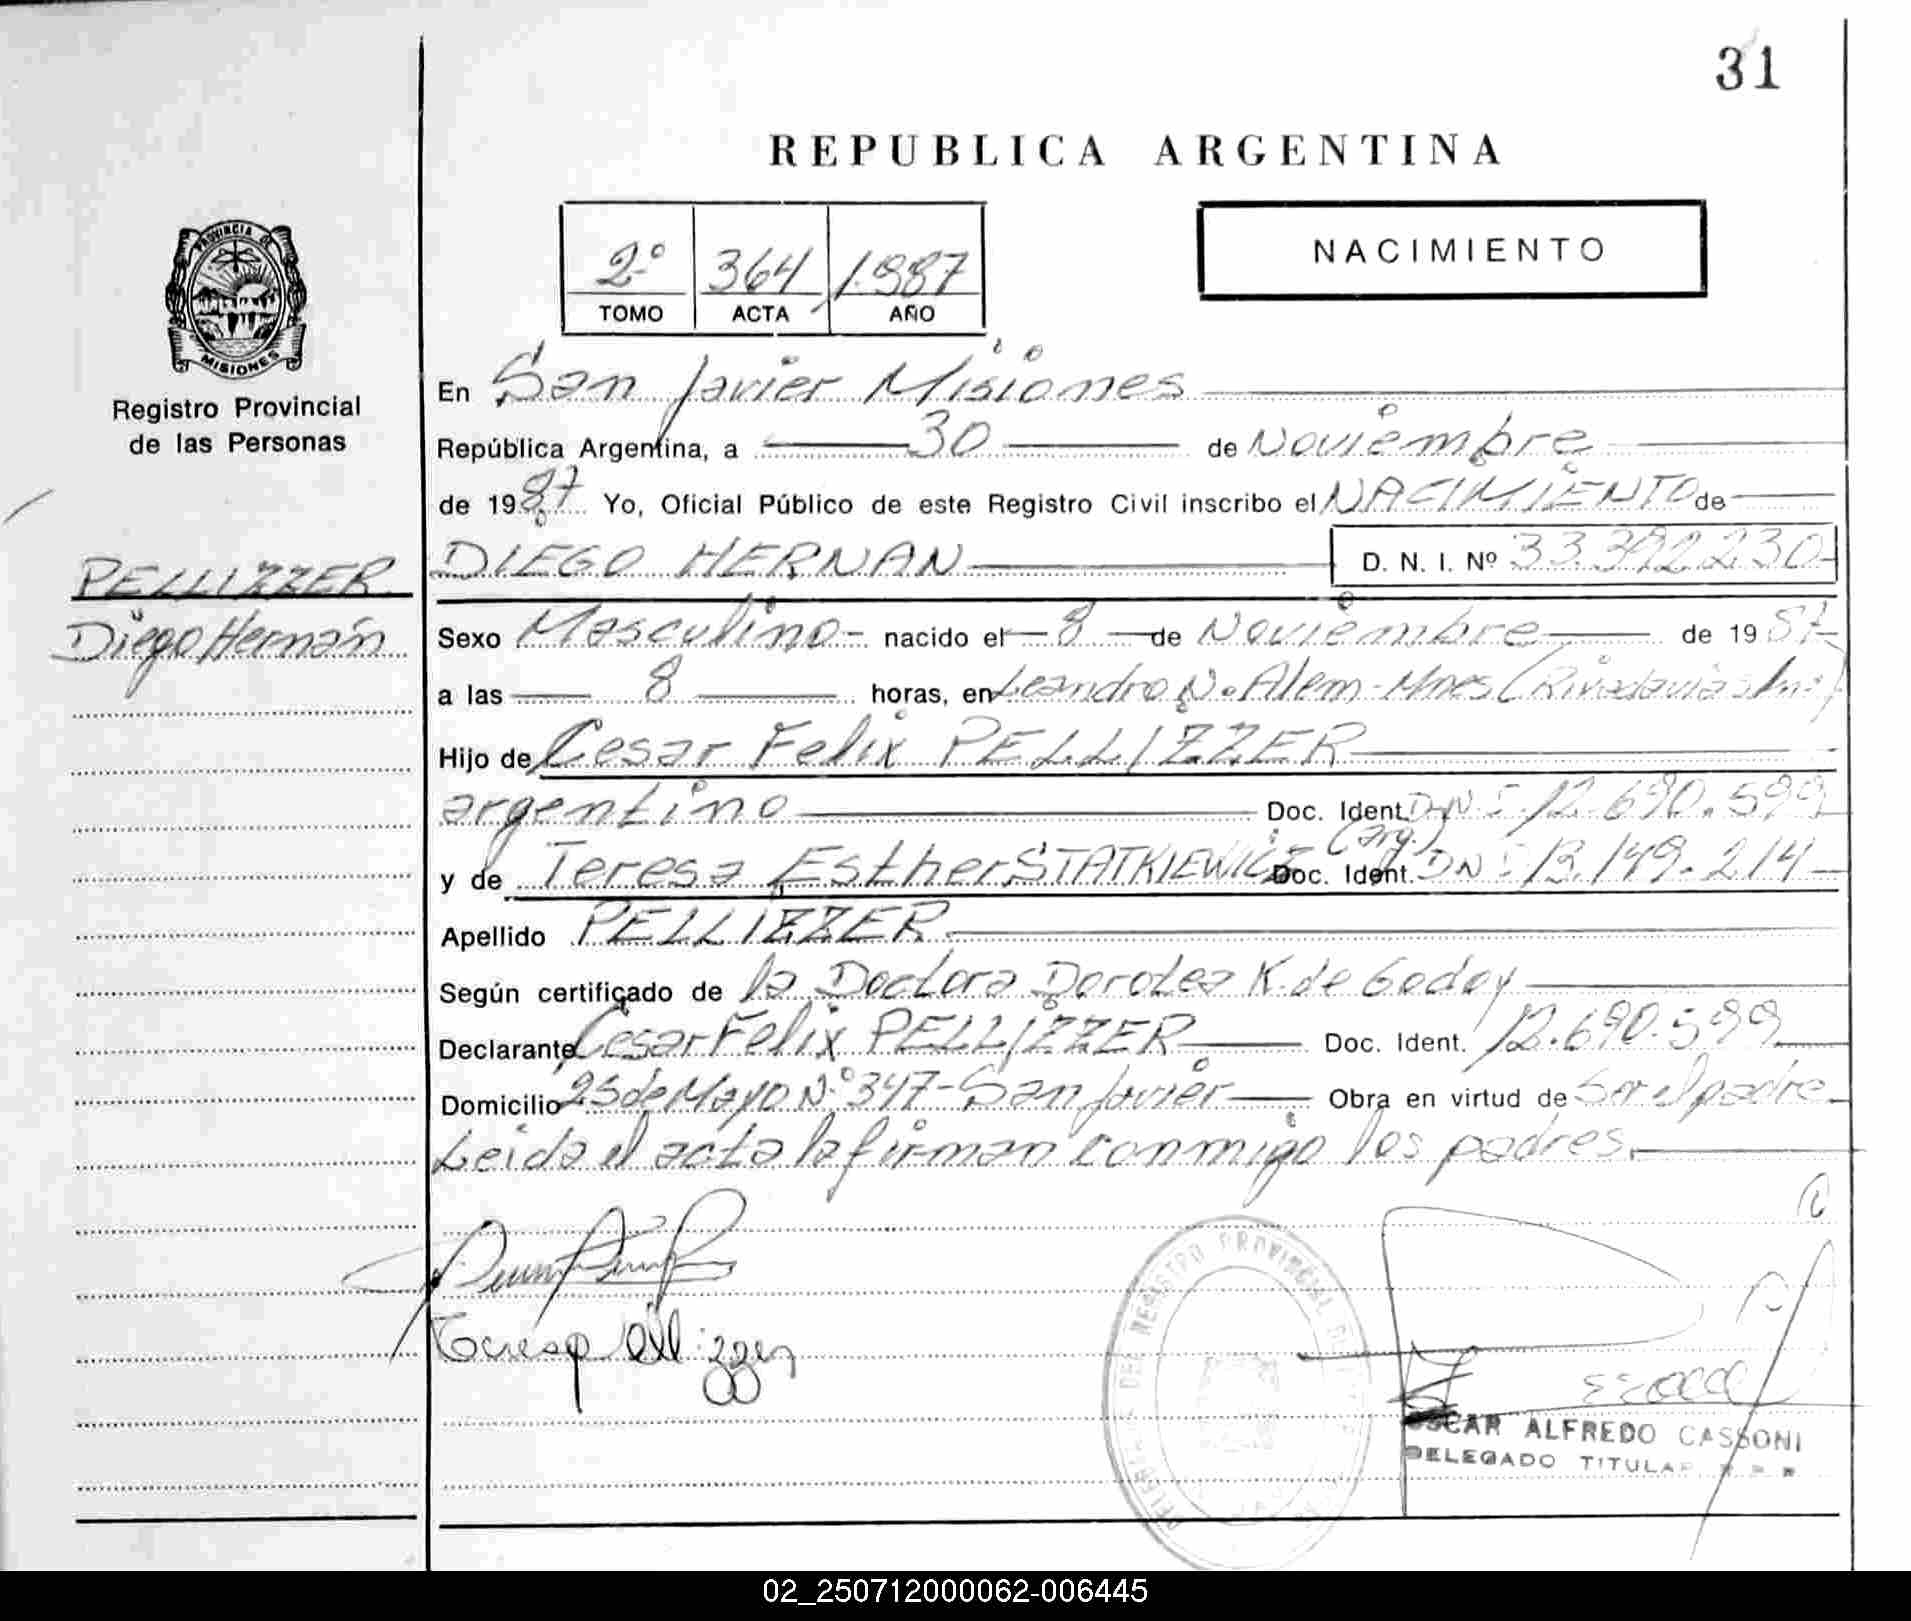 31
REPUBLICA ARGENTINA
2º 364 1.987
TOMO ACTA AÑO
NACIMIENTO
PROVINCIA DE
MISIONES
Registro Provincial
de las Personas
PELLIZZER
Diego Hernán
En San Javier Misiones
República Argentina, a 30 de Noviembre
de 1987 Yo, Oficial Público de este Registro Civil inscribo el NACIMIENTO de
DIEGO HERNAN D. N. I. Nº 33.392.230
Sexo Masculino nacido el 8 de Noviembre de 1987
a las 8 horas, en Leandro N. Alem - Mnes (Rivadavia
Hijo de Cesar Felix PELLIZZER
argentino Doc. Ident. D.N.I. 12.690.599
(arg.)
y de Teresa Esther STATKIEWICZ Doc. Ident. DNI 13.149.214
Apellido PELLIZZER
Según certificado de la Doctora Dorotea K. de Godoy
Declarante Cesar Felix PELLIZZER Doc. Ident. 12.690.599
Domicilio 25 de Mayo N.º 347 - San Javier Obra en virtud de Ser el padre
Leida el acta la firman conmigo los padres.
Teresa Pellizzer
REGISTRO PROVINCIAL
OSCAR ALFREDO CASSONI
DELEGADO TITULAR
02_250712000062-006445